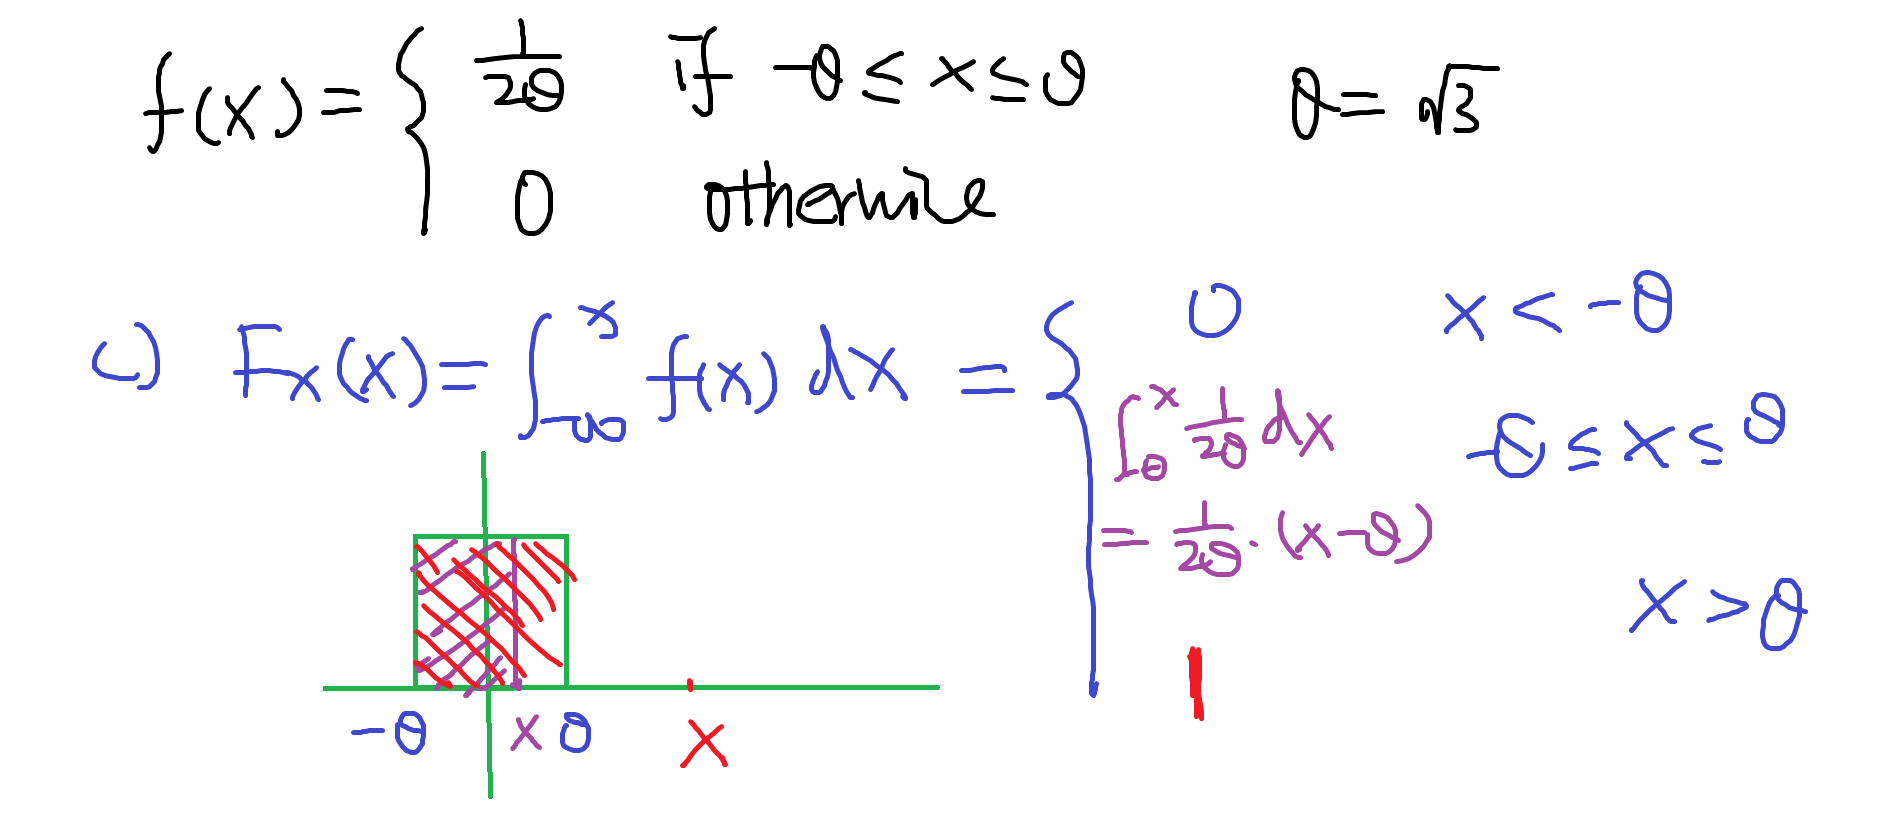 f(x) = { 1/2θ if -θ ≤ x ≤ θ θ = √3
0 otherwise
c) F_X(x) = ∫_{-∞}^{x} f(x) dx = { 0 x < -θ
∫_{-θ}^{x} 1/2θ dx -θ ≤ x ≤ θ
= 1/2θ · (x-θ)
1 x > θ
-θ x θ x